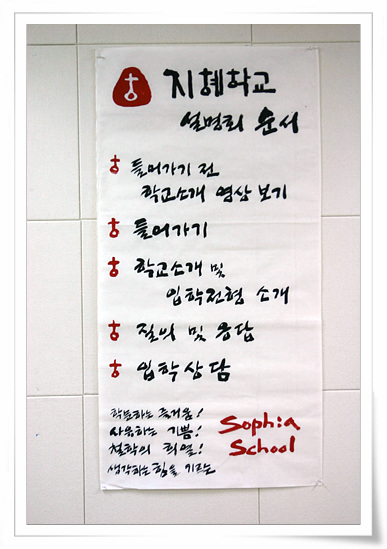 지혜학교
설명회 순서
들어가기 전
학교소개 영상 보기
들어가기
학교소개 및
입학전형 소개
질의 및 응답
입학상담
학문하는 즐거움!
사유하는 기쁨!
철학의 희열!
생각하는 힘을 기르는
Sophia
School